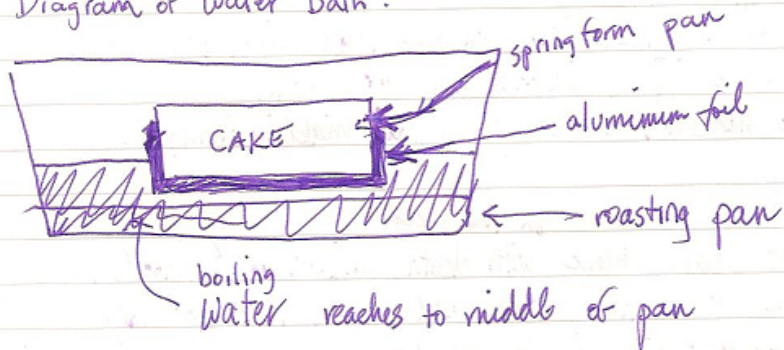 Diagram of Water Bath:
springform pan
CAKE
aluminum foil
roasting pan
boiling
Water reaches to middle of pan